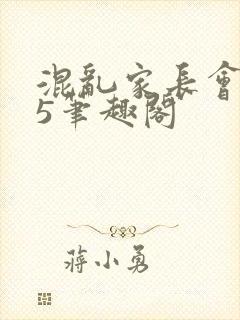 混亂家長會
5筆趣閣
蔣小勇